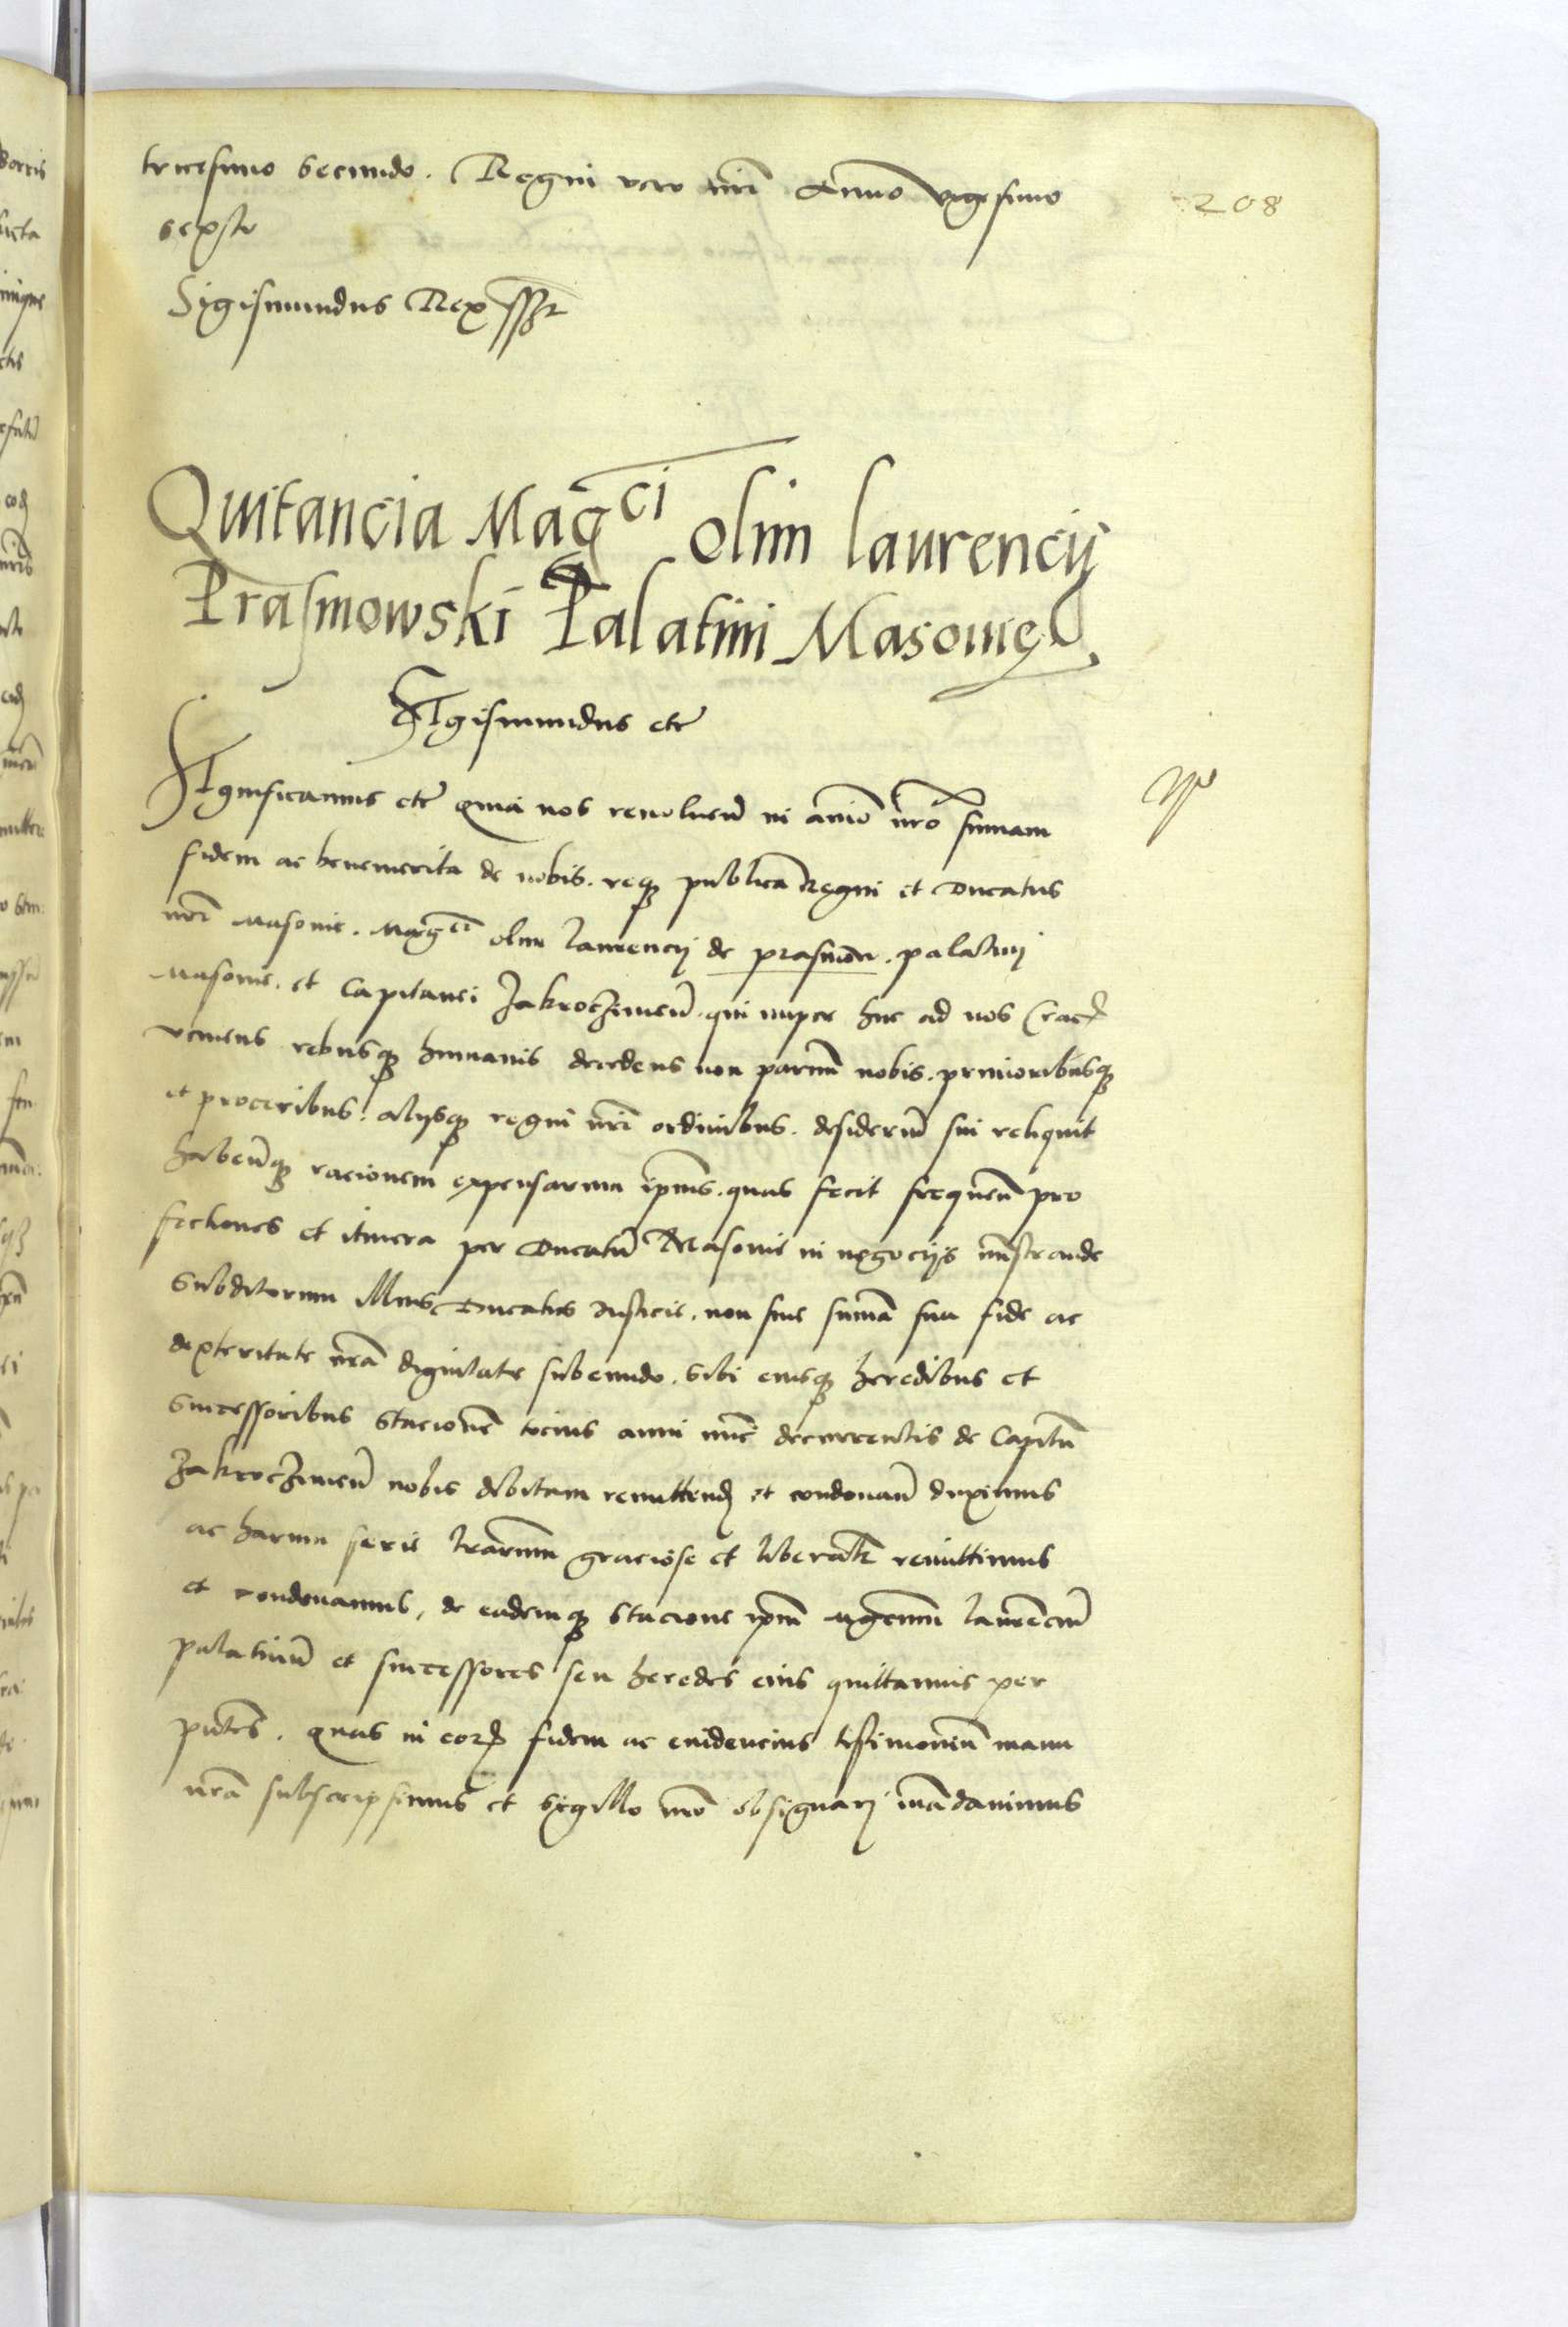 208
tricesimo secundo. Regni vero nri Anno vigesimo
sexto
Sigismundus Rex sst
Quitancia Magci olim laurencij
Prasmowski Palatini Masovie
Sigismundus etc
Significamus etc quia nos revoluen in animo nro summam
fidem ac benemerita de nobis. req publica Regni et Ducatus
nri Masovie. Magci olim laurencij de prasmow. palatinj
Masovie. et Capitanei Zakroczimen. qui nuper huc ad nos Crac
veniens rebusq humanis decedens non parum nobis. primoribusq
et proceribus. alijsq regni nri ordinibus. desiderium sui reliquit
habenq racionem expensarum ipius. quas fecit frequen pro
fectiones et itinera per Ducatum Masovie in negocijs ministrande
subditorum illius Ducatus Justicie. non sine summa sua fide ac
dexteritate nra dignitate subeundo. sibi eiusq heredibus et
successoribus stacione tocius anni nunc decurrentis de Captu
Zakroczimen nobis debitam remittend et condonan duximus
ac harum serie lrarum graciose et liberalr remittimus
et condonamus, de eademq stacione ipm Mgcum laurencium
palatinum et successores seu heredes eius quittamus per
pntes. quas in eor fidem ac evidencius testimonium manu
nra subscripsimus et sigillo nro obsignarj mandavimus